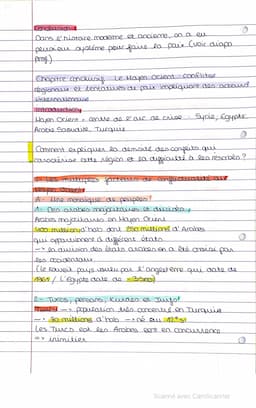 Conclusion :
Dans l'histoire moderne et ancienne, on a eu
plusieurs système pour faire la paix (voir diapo
prof)
Chapitre conclusif : Le Moyen Orient : conflits
régionaux et tentatives de paix impliquant des acteurs
internationaux
Introduction
Moyen Orient = centre de l'arc de crise : Syrie, Egypte
Arabie Saoudite, Turquie
Comment expliquer la densité des conflits qui
caractérise cette région et la difficulté à les résoudre ?
I - Les multiples facteurs de conflictualité au
Moyen Orient
A - Une mosaïque de peuples
1 - Des arabes majoritaires et divisés
Arabes majoritaires au Moyen Orient
400 millions d'hab dont 250 millions d'Arabes
qui appartiennent à différent états
→ la division des états arabes en a été choisi par
les occidentaux
(le pays qui date de
/ l'Egypte date de - )
2 - Turcs, persans, Kurdes et Juifs
Turcs → population très concentré en Turquie
→ 80 millions d'hab → né au
Les Turcs et les Arabes sont en concurrence
→ inimitier
Scanné avec CamScanner